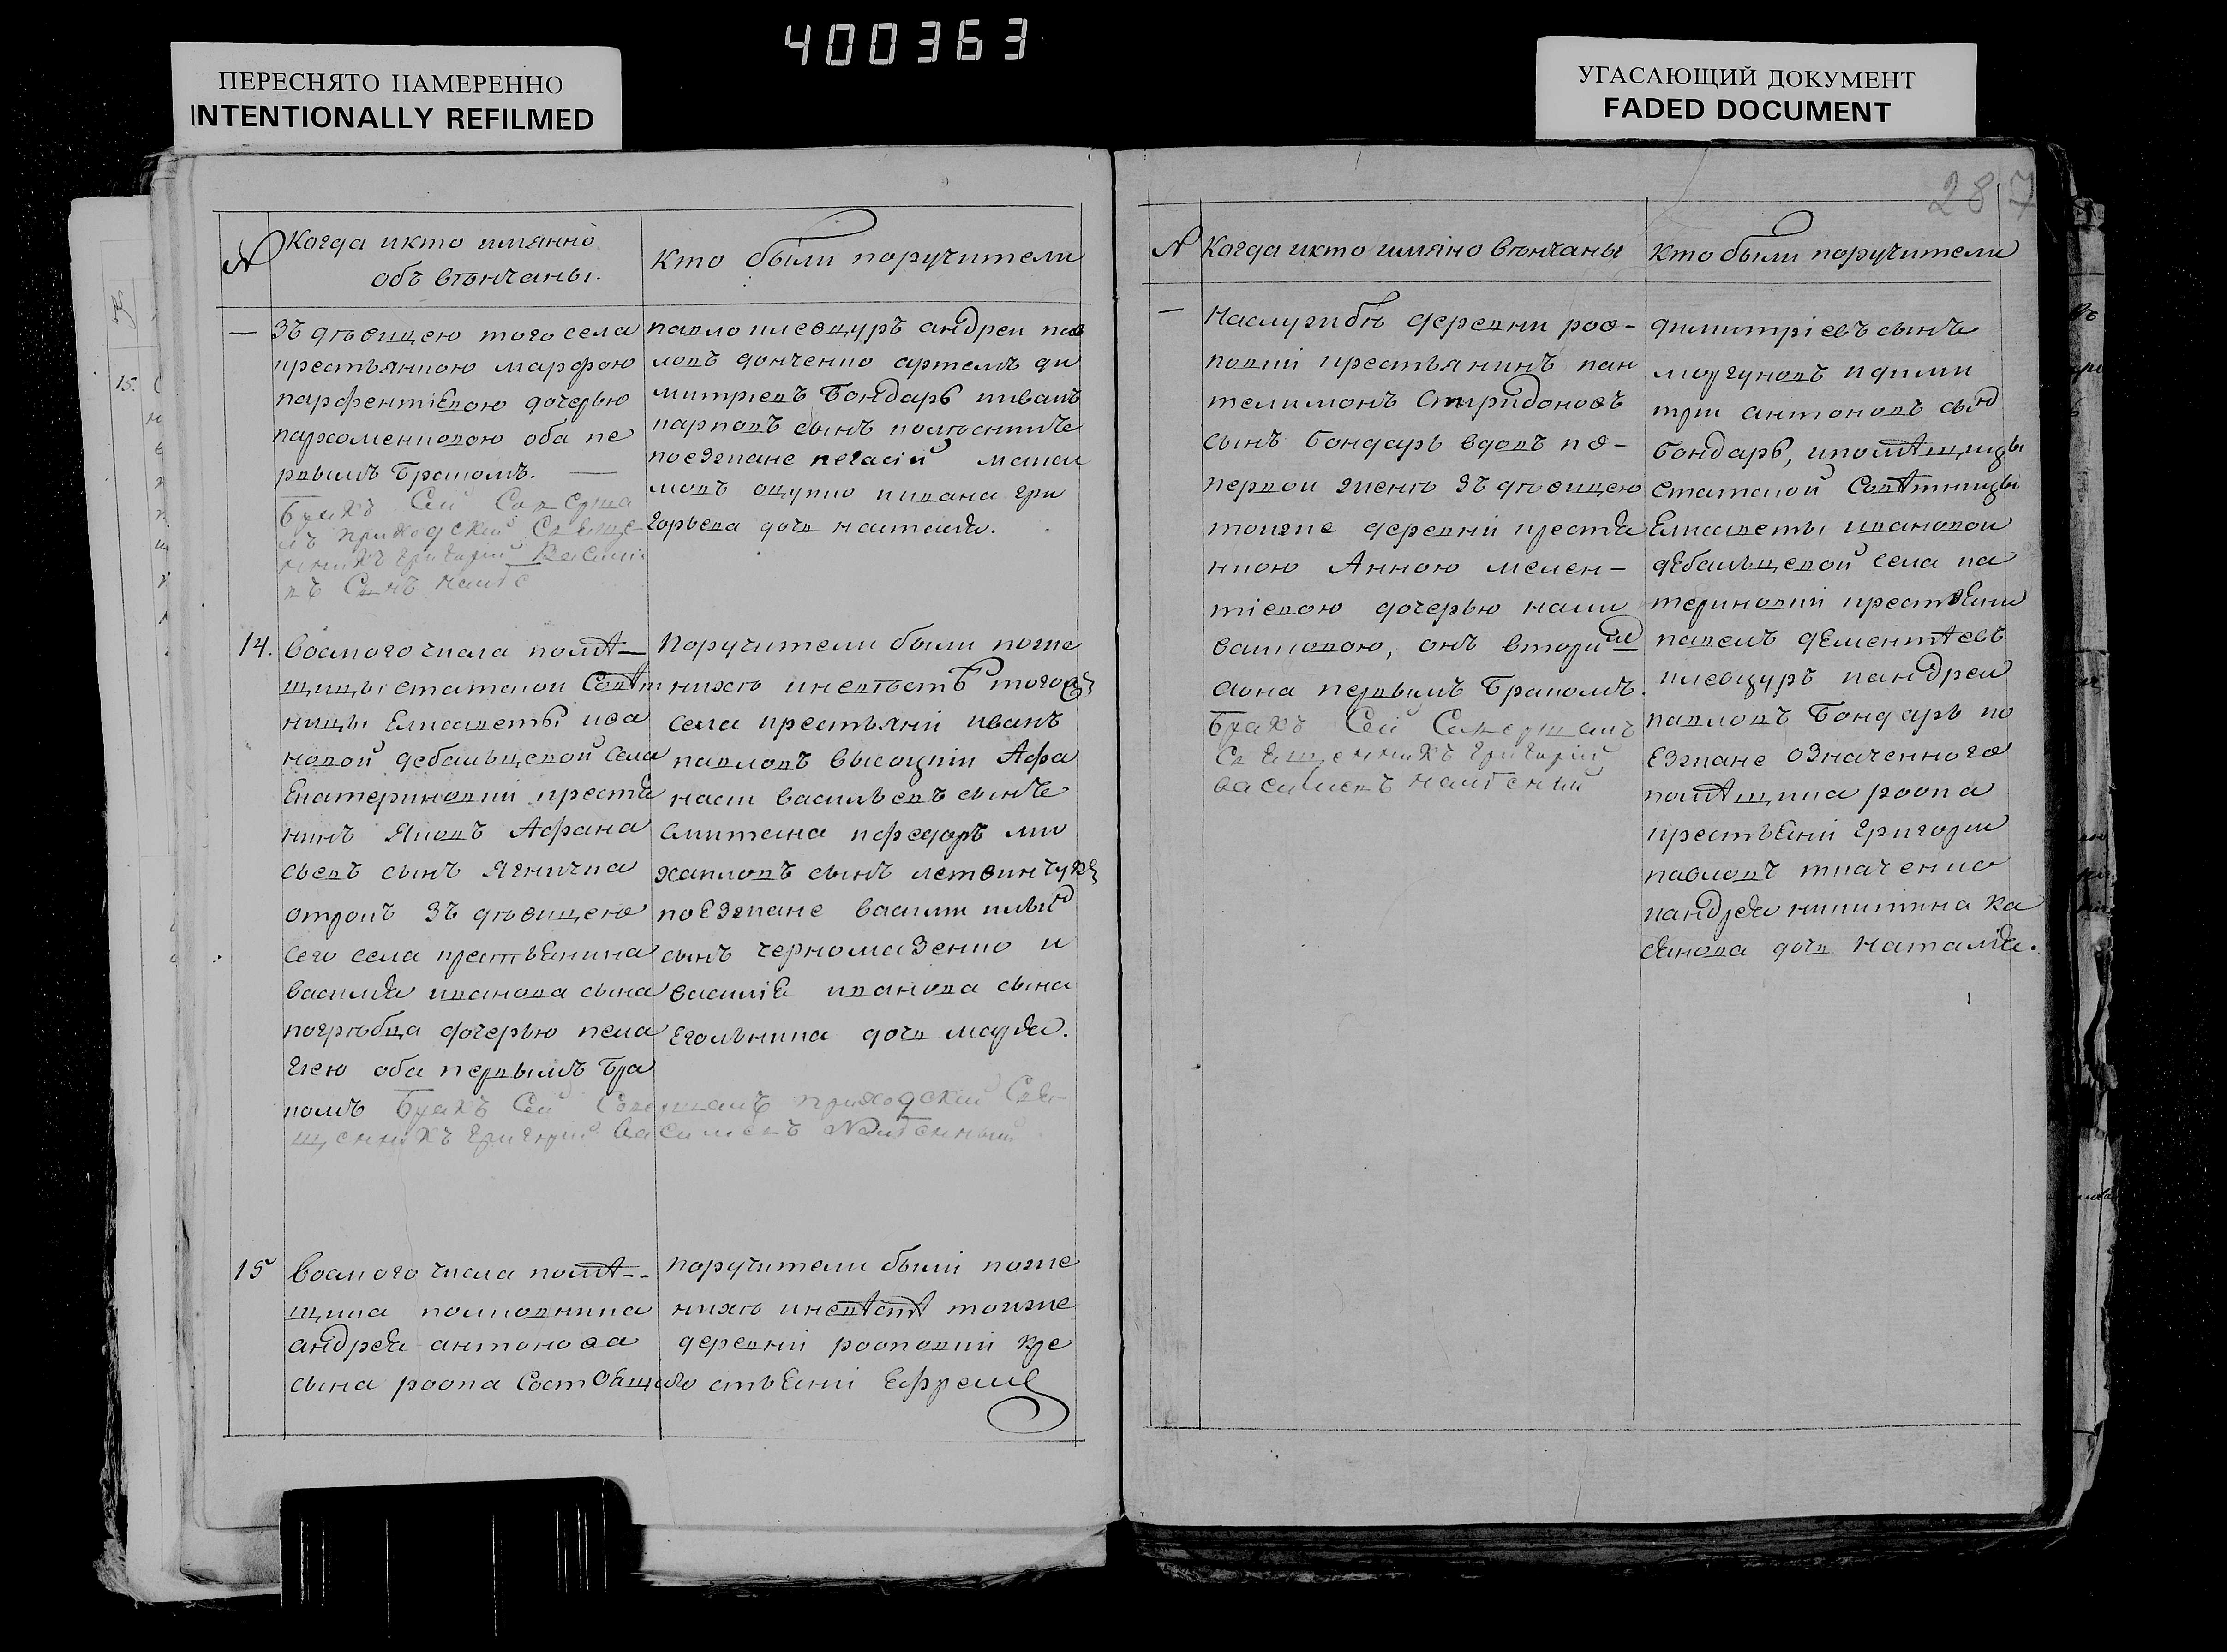 400363
ПЕРЕСНЯТО НАМЕРЕННО
INTENTIONALLY REFILMED
УГАСАЮЩИЙ ДОКУМЕНТ
FADED DOCUMENT
№
Когда икто имянно
объ вѣнчаны.
Кто были поручители
— зъ дѣвицею того села
крестьянкою марфою
парфентіевою дочерью
пархоменковою оба пе
рвымъ бракомъ. —
Бракъ Сей Соверша
лъ приходскій Свяще-
нникъ григорій Василіе
въ Сынъ
павло плевцуръ андреи пав
ловъ донченко артемъ ди
митріевъ Бондарь ииванъ
карповъ сынъ
поезжане
григорьева дочь наталія.
14. восмого числа помѣ—
щицы статской Совѣт
ницы Елисаветы ива
новой дебальцевой села
Екатериновки крестья
нинъ Яковъ Афана
сьевъ сынъ Ягничка
отрокъ зъ дѣвицею
сего села крестьянина
василія иванова сына
погрѣбца дочерью пела
гіею оба первымъ бра
комъ Бракъ Сей Совершалъ приходскій Свя-
щенникъ григорій Василіевъ
Поручители были поже
нихѣ иневѣстѣ того
села крестьяни иванъ
павловъ высоцкій Афа
насій васильевъ сынъ
Смитска ифедоръ ми
хаиловъ сынъ летвинчукъ
поезжане василій ильи
сынъ черномазенко и
василія иванова сына
Егольника дочь марія.
15 восмого числа помѣ--
щика полковника
андрея антонова
сына роопа Состоящого
поручители были поже
нихѣ иневѣстѣ тоиже
деревни рооповки кре
стьяни Ефремъ
287
№ Когда икто имяно вѣнчаны
Кто были поручители
— Наслужбѣ деревни роо-
повки крестьянинъ пан
телимонъ Спиридоновъ
сынъ бондарь вдовъ по-
первой женѣ зъ дѣвицею
тоиже деревни крестья
нкою Анною мелен-
тіевою дочерью кали
вошковою, онъ вторимъ
аона первымъ бракомъ.
Бракъ Сей Совершалъ
Священникъ григорій
василіевъ
димитріевъ сынъ
моргуновъ идими
трій антоновъ сынъ
бондарь, ипомѣщицы
статской Совѣтницы
Елисаветы ивановой
дебальцевой села ка
териновки крестьяни
павелъ дементѣевъ
плевцуръ иандрей
павловъ бондарь по
езжане означенного
помѣщика роопа
крестьяни григорій
павловъ ткаченко
иандрея никитина ка
сьянова дочь Наталія.